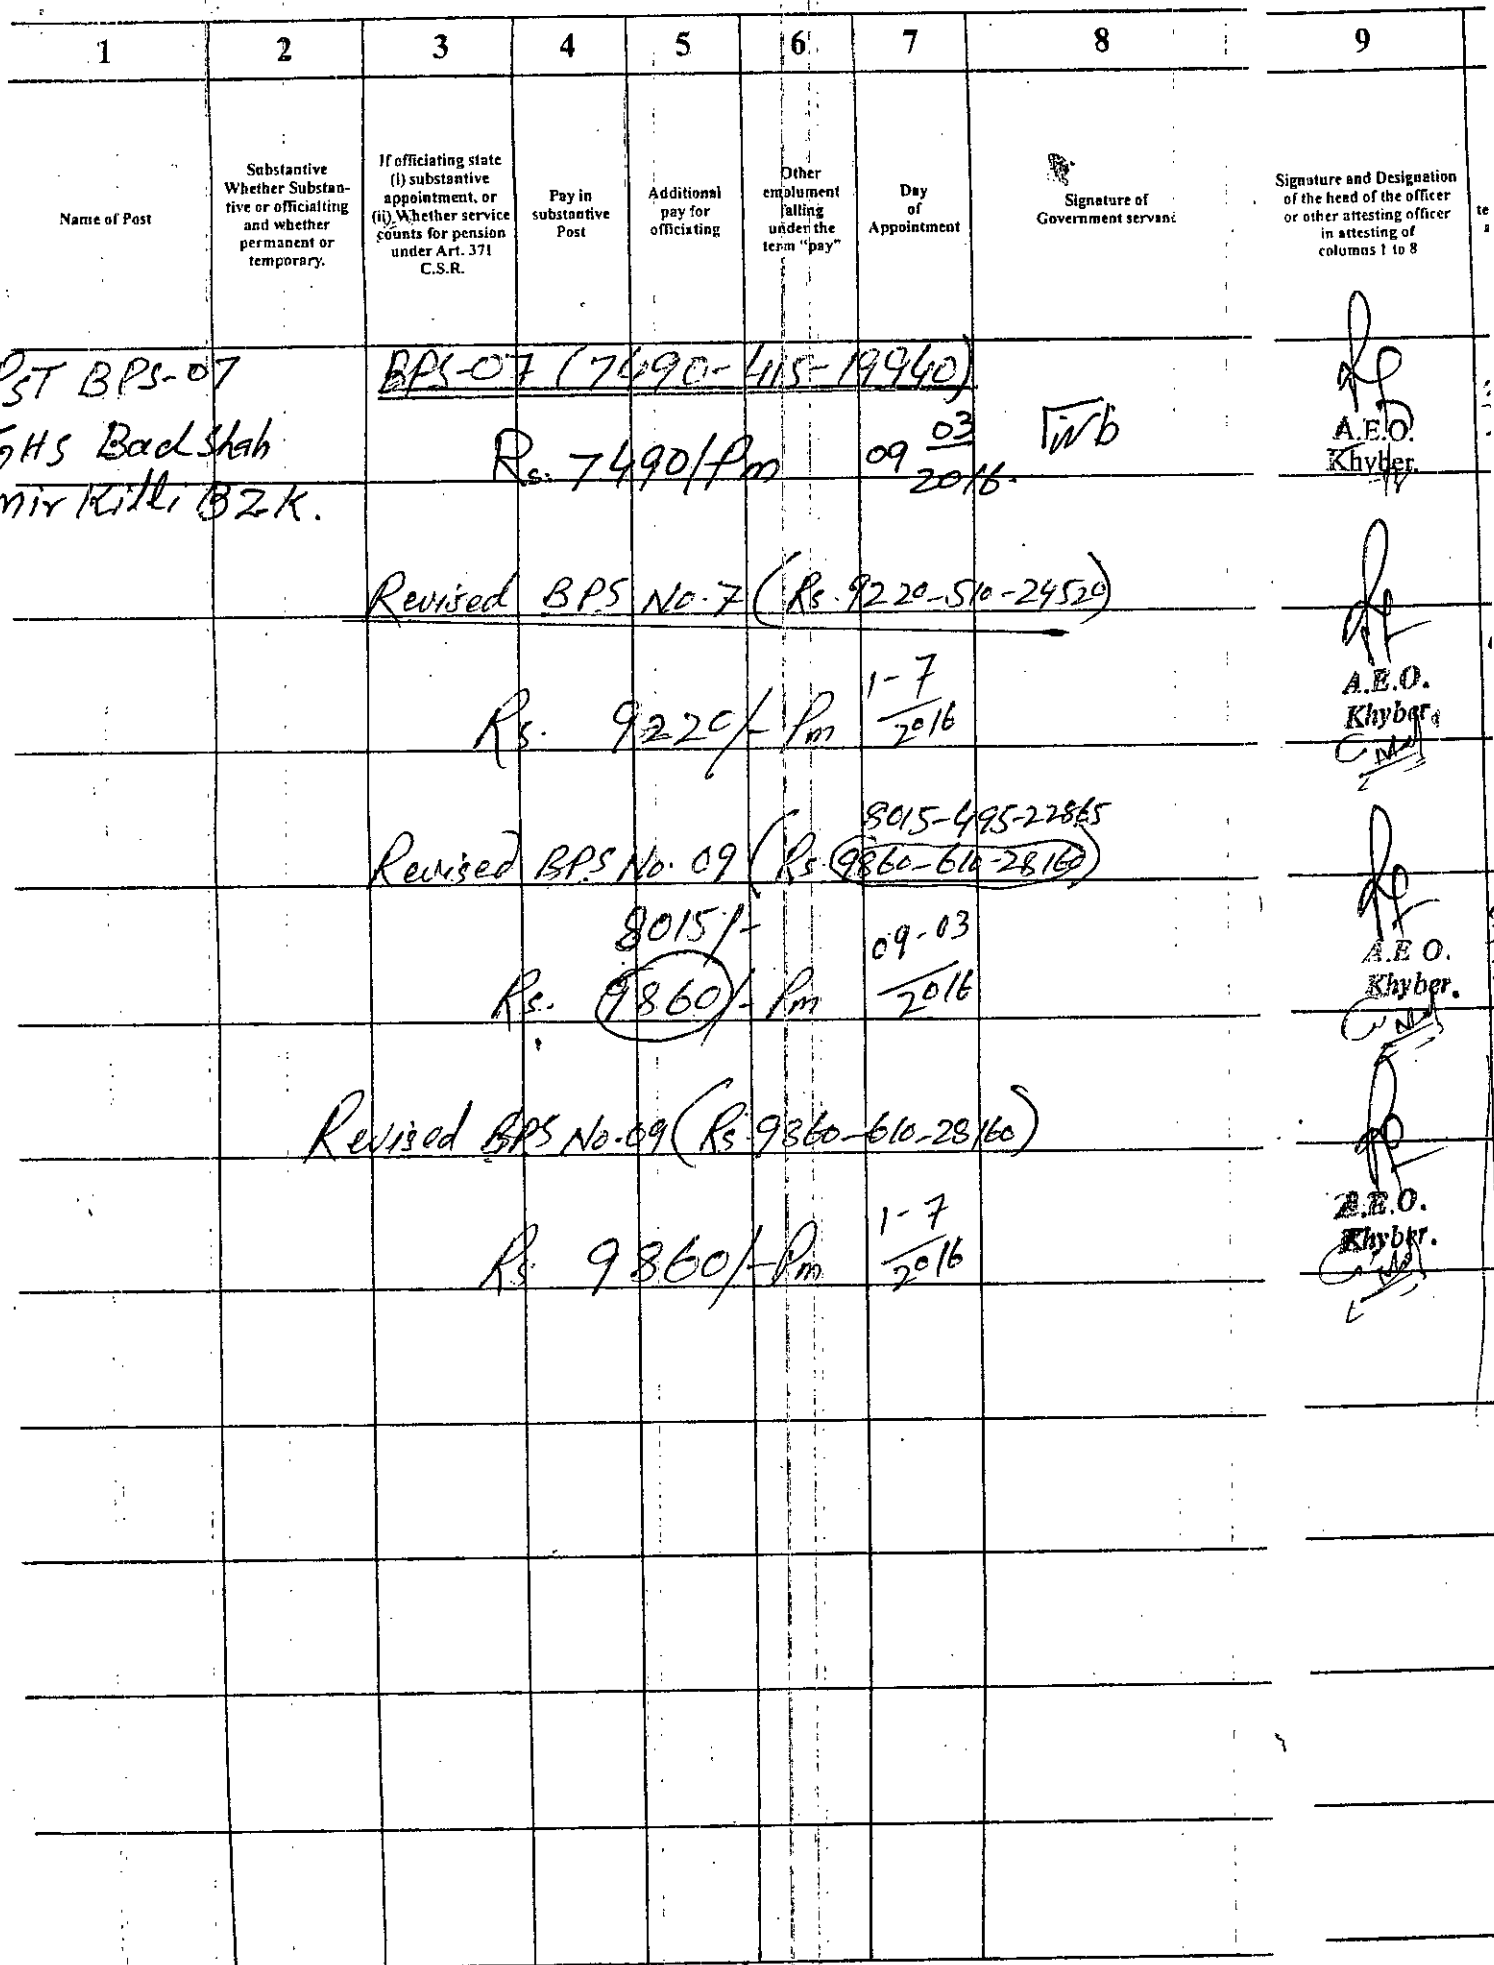 1 2 3 4 5 6 7 8 9
Name of Post
Substantive
Whether Substan-
tive or officialting
and whether
permanent or
temporary.
If officiating state
(i) substantive
appointment, or
(ii) Whether service
counts for pension
under Art. 371
C.S.R.
Pay in
substantive
Post
Additional
pay for
officiating
Other
emolument
falling
under the
term "pay"
Day
of
Appointment
Signature of
Government servant
Signature and Designation
of the head of the officer
or other attesting officer
in attesting of
columns 1 to 8
PST BPS-07 BPS-07 (7490-415-19940)
GHS Badshah Rs. 7490/Pm 09 03 2016.
mir Killi BZK.
A.E.O.
Khyber.
Revised BPS No.7 (Rs. 9220-510-24520)
Rs. 9220/- Pm 1-7 2016
A.E.O.
Khyber.
8015-495-22865
Revised BPS No. 09 (Rs. 9860-610-28160)
8015/-
Rs. 9860/- Pm 09-03 2016
A.E O.
Khyber.
Revised BPS No.09 (Rs 9860-610-28160)
Rs 9860/- Pm 1-7 2016
A.E.O.
Khyber.